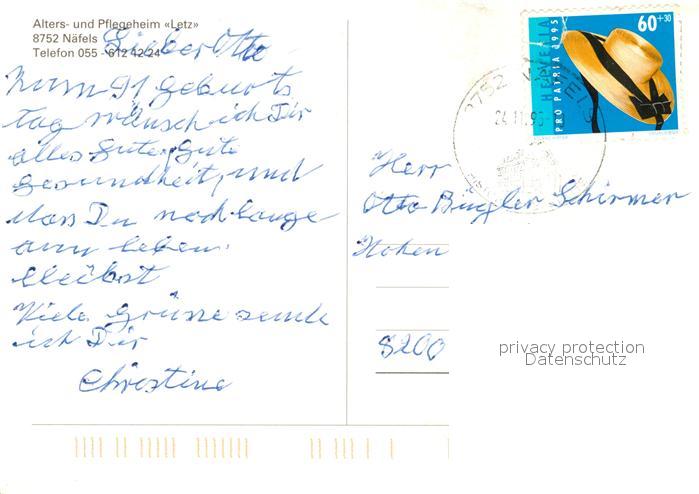 Alters- und Pflegeheim «Letz»
8752 Näfels
Telefon 055 - 612 42 24
Lieber Otto
Zum 91 geburts
tag wünsch ich Dir
alles gute, gute
gesundheit, und
dass Du noch lange
am leben.
bleibst
Viele Grüsse sende
ich Dir
Christine
60+30
HELVETIA
PRO PATRIA 1995
8752 NÄFELS
24.11.95
Herr
Otto Bügler Schirmer
Hohen
8200
privacy protection
Datenschutz